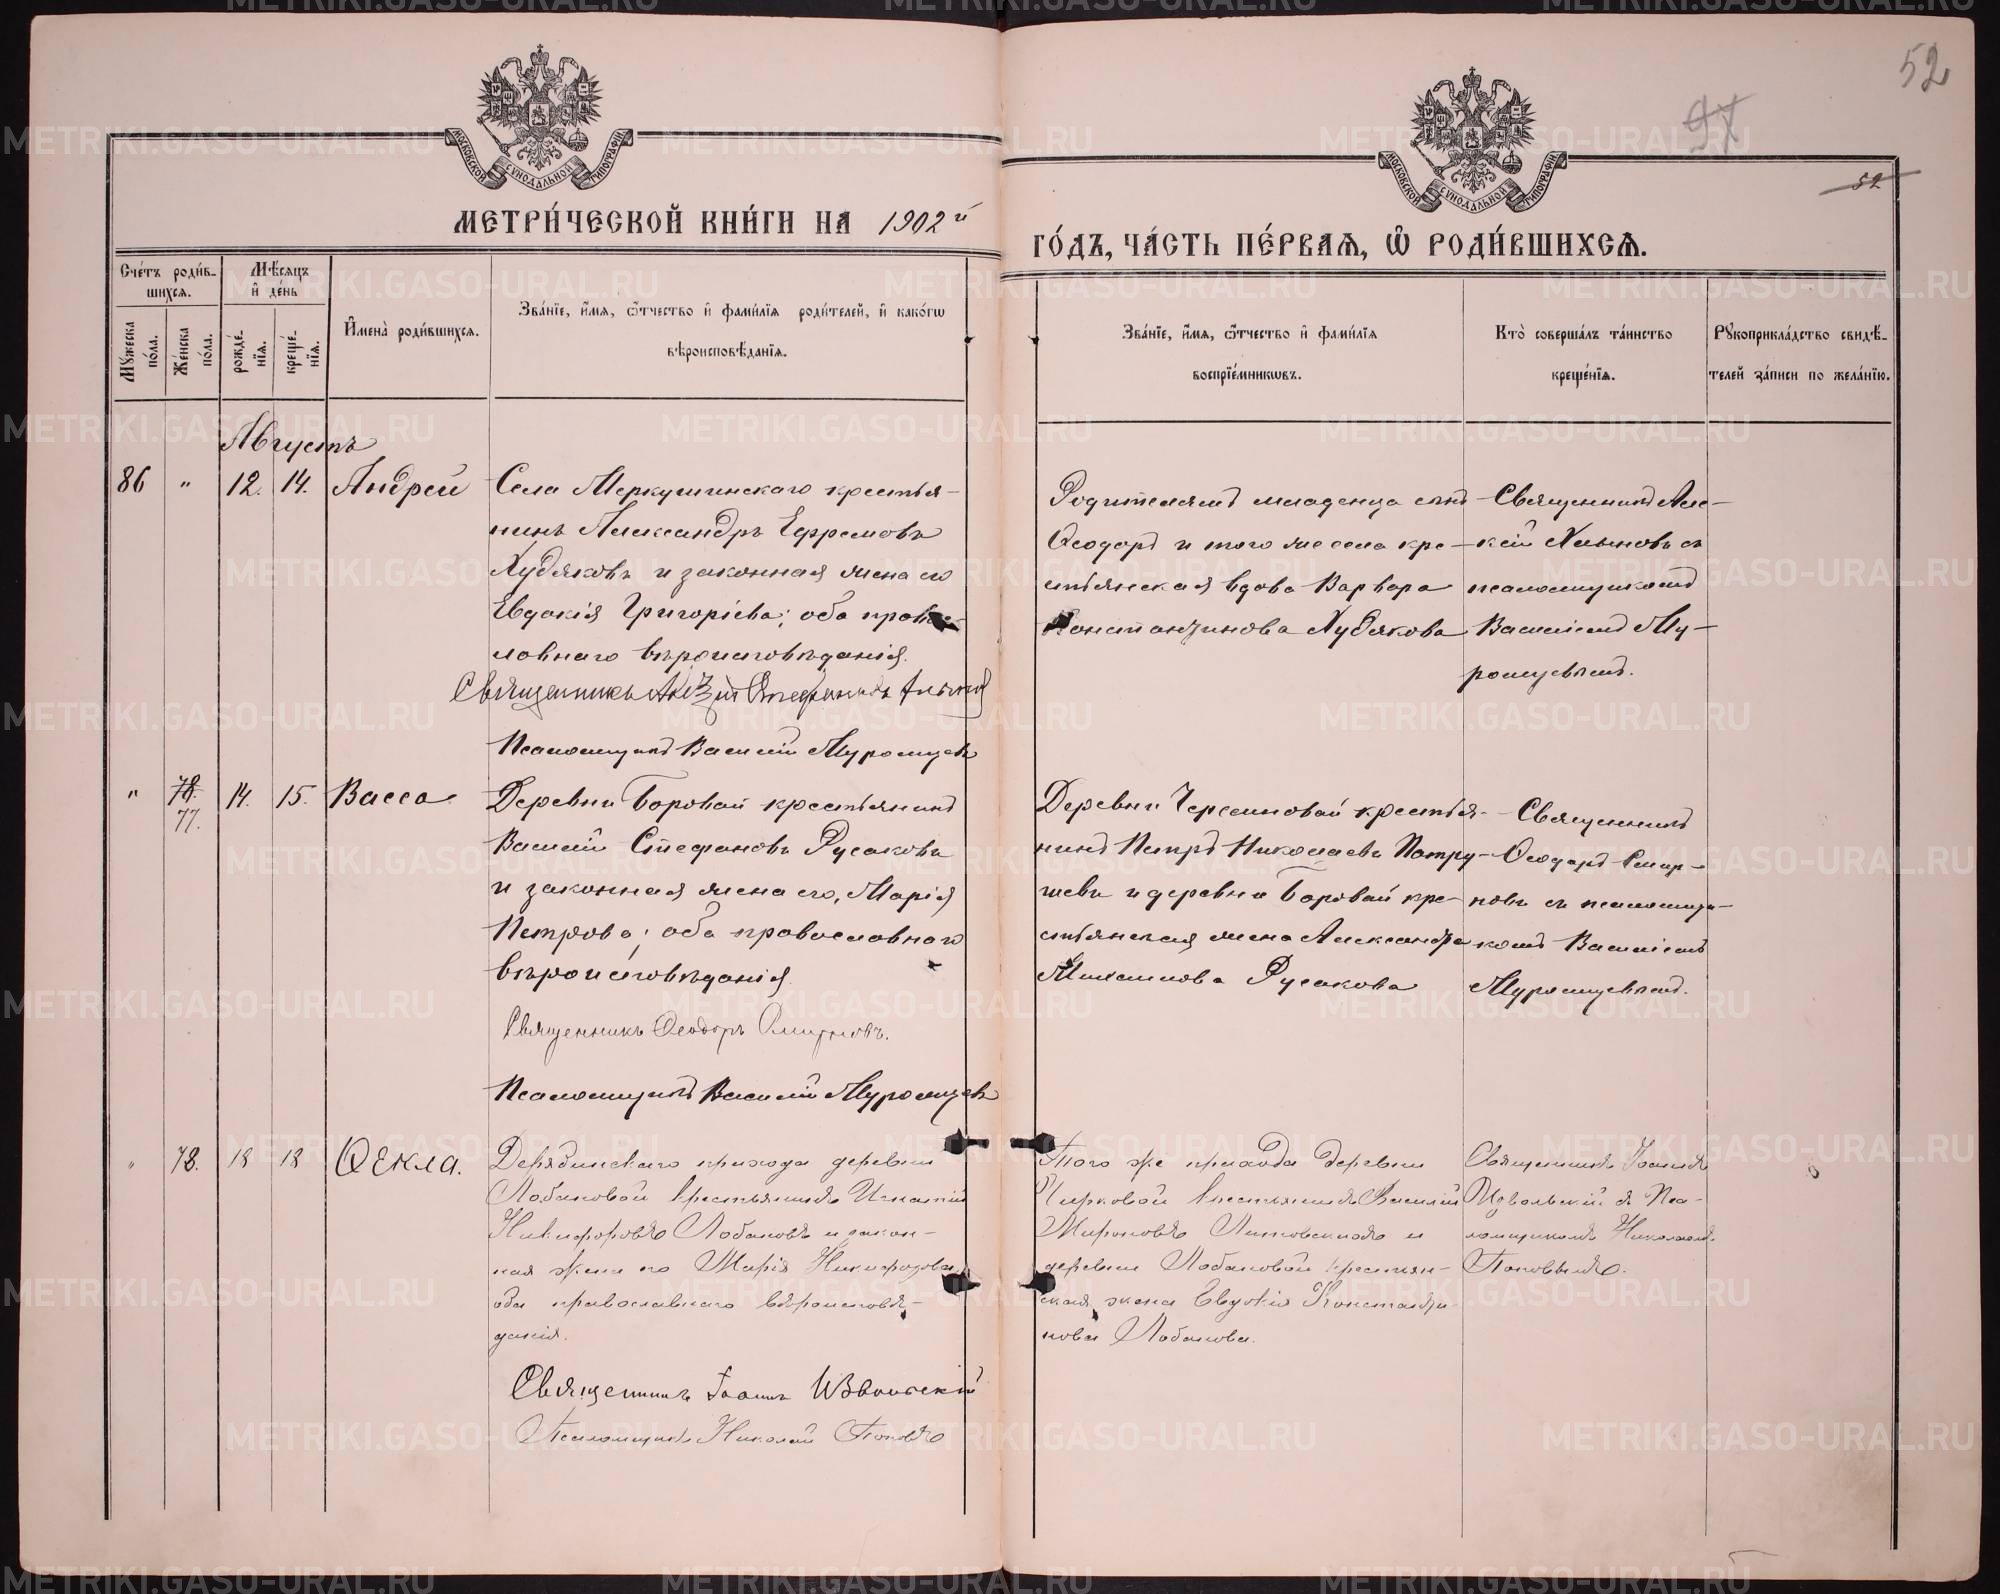 52
97
52
МОСКОВСКОЙ СУНОДАЛЬНОЙ ТИПОГРАФІИ
МОСКОВСКОЙ СУНОДАЛЬНОЙ ТИПОГРАФІИ
МЕТРИ́ЧЕСКОЙ КНИ́ГИ НА 1902й
ГО́ДЪ, ЧА́СТЬ ПЕ́РВАѦ, Ѡ҃ РОДИ́ВШИХСѦ.
Сче́тъ роди́в-
шихсѧ.
Мꙋжеска по́ла.
Же́нска по́ла.
Мѣ́сѧцъ
и҆ де́нь
рожде́-
нїѧ.
креще́-
нїѧ.
И҆мена̀ роди́вшихсѧ.
Зва́нїе, и҆́мѧ, ѻ҆́тчество и҆ фами́лїѧ роди́телей, и҆ како́гѡ
вѣроисповѣ́данїѧ.
Зва́нїе, и҆́мѧ, ѻ҆́тчество и҆ фами́лїѧ
воспрїе́мникѡвъ.
Кто̀ соверша́лъ та́инство
креще́нїѧ.
Рꙋкоприкла́дство свидѣ́-
телей за́писи по жела́нїю.
Августъ
86 " 12. 14. Андрей
Села Меркушинскаго крестья-
нинъ Александръ Ефремовъ
Худяковъ и законная жена его
Евдокія Григоріева; оба право-
славнаго вѣроисповѣданія.
Священникъ
Псаломщикъ Василій Муромцевъ
Родителямъ младенца сынъ
Ѳеодоръ и того же села кре-
стьянская вдова Варвара
Константинова Худякова
Священникъ Але-
ксій Хлыновъ съ
псаломщикомъ
Василіемъ Му-
ромцевымъ.
" 78. 77. 14. 15. Васса.
Деревни Боровой крестьянинъ
Василій Стефановъ Русаковъ
и законная жена его, Марія
Петрова; оба православнаго
вѣроисповѣданія.
Священникъ Ѳеодоръ Смирновъ.
Псаломщикъ Василій Муромцевъ
Деревни крестья-
нинъ Петръ Николаевъ Патру-
шевъ и деревни Боровой кре-
стьянская жена Александра
Михаилова Русакова
Священникъ
Ѳеодоръ Смир-
новъ съ псаломщи-
комъ Василіемъ
Муромцевымъ.
" 78. 18 18 Ѳекла.
Дерябинскаго прихода деревни
Лобановой крестьянинъ Игнатій
Никифоровъ Лобановъ и закон-
ная жена его Марія Никифорова,
оба православнаго вѣроисповѣ-
данія.
Священникъ Іоаннъ Извольскій
Псаломщикъ Николай Поповъ
Того же прихода деревни
крестьянинъ Василій
Мироновъ Литовскихъ и
деревни Лобановой крестьян-
ская жена Евдокія Константи-
нова Лобанова.
Священникъ Іоаннъ
Извольскій съ Пса-
ломщикомъ Николаемъ
Поповымъ.
METRIKI.GASO-URAL.RU